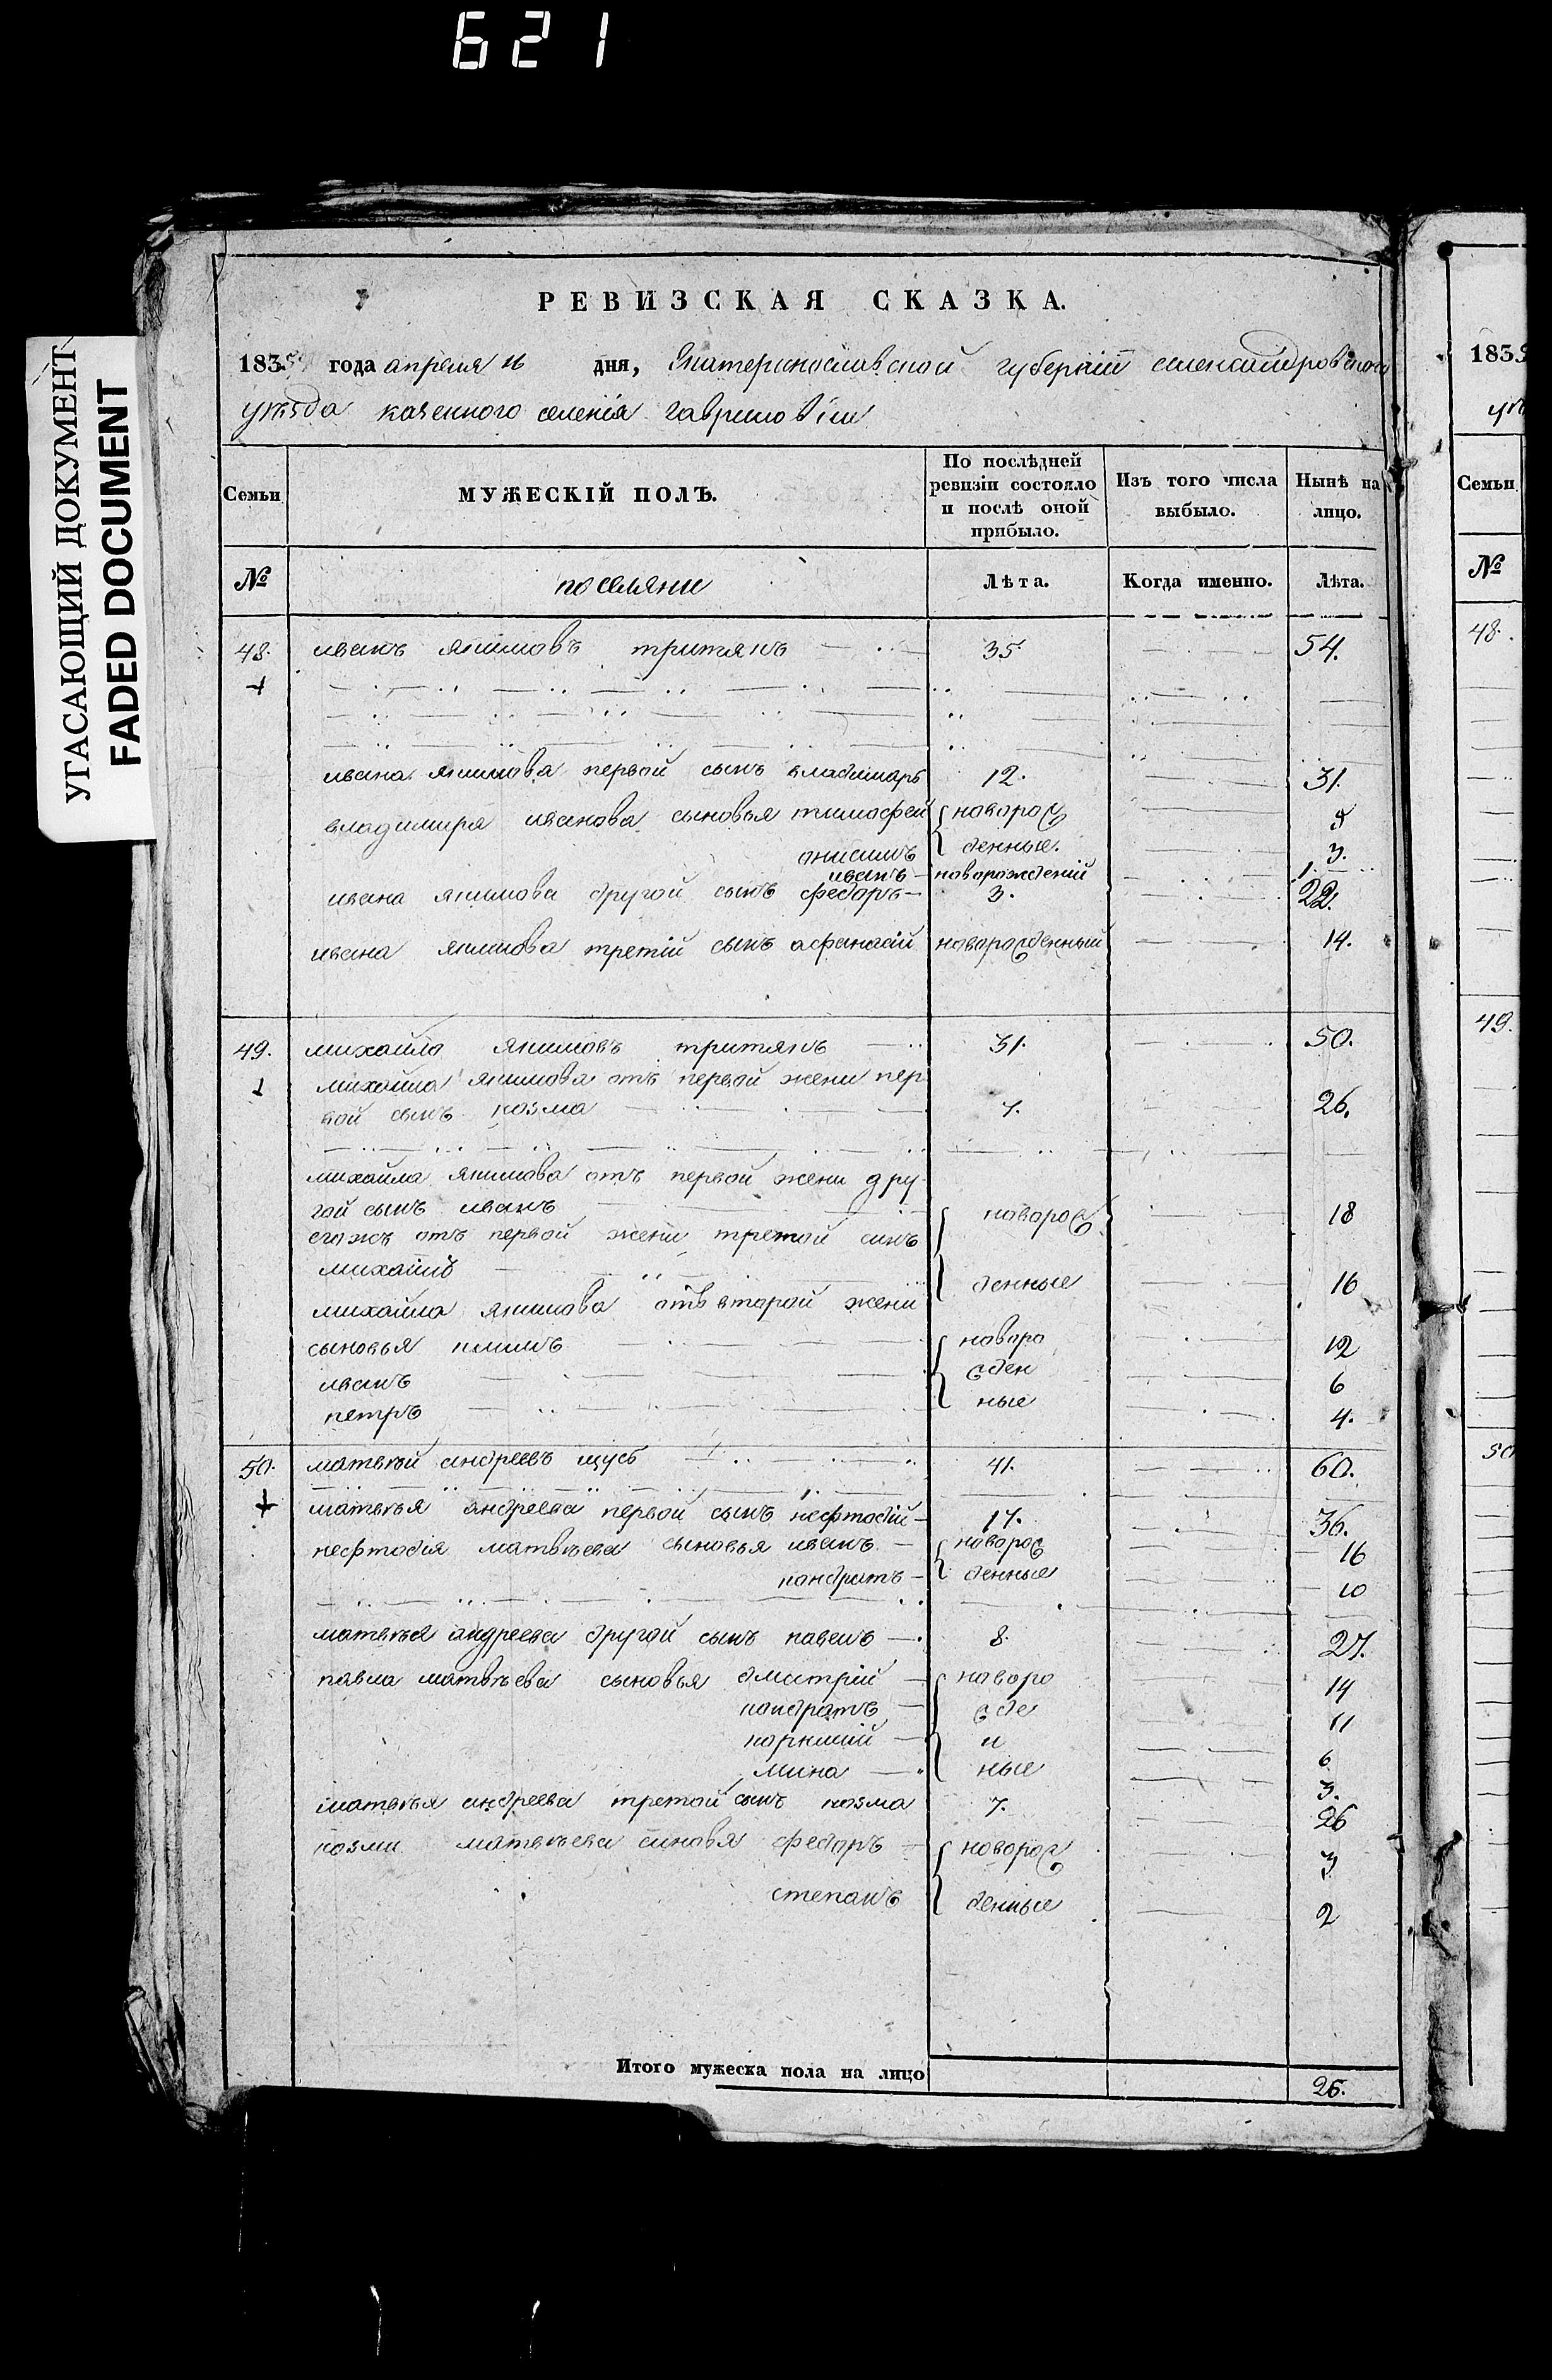 621
УГАСАЮЩИЙ ДОКУМЕНТ
FADED DOCUMENT
РЕВИЗСКАЯ СКАЗКА.
1835 года апреля дня, Екатеринославской губерній александровского
уѣзда казенного селенія гавриловки
Семьи МУЖЕСКІЙ ПОЛЪ. По послѣдней ревизіи состояло и послѣ оной прибыло. Изъ того числа выбыло. Нынѣ на лицо.
№ поселяни Лѣта. Когда именно. Лѣта.
48. иванъ якимовъ тритякъ 35 54.
ивана якимова первой сынъ владимиръ 12. 31.
владимира иванова сыновья тимофей новорож 5
анисимъ денные. 3.
иванъ новорожденій 1.
ивана якимова другой сынъ федоръ 3. 22.
ивана якимова третій сынъ афанасій новорожденный 14.
49. михайло якимовъ тритякъ 31. 50.
михайла якимова отъ первой жени пер
вой сынъ козма 7. 26.
михайла якимова отъ первой жени дру
гой сынъ иванъ новорож 18
егожъ отъ первой жени третой синъ
михаилъ денные 16
михайла якимова отъ второй жени
сыновья климъ новоро 12
иванъ жден 6
петръ ные 4.
50. матвей андреевъ щусь 41. 60.
матвея андреева первой сынъ нефтодій 17. 36.
нефтодія матвѣева сыновья иванъ новорож 16
кондратъ денные 10
матвея андреева другой сынъ павелъ 8. 27.
павла матвѣева сыновья дмитрій новоро 14
кондратъ жде 11
корнилий н 6
мина ные 3.
матвея андреева третой сынъ козма 7. 26
козми матвѣева синовя федоръ новорож 3
степанъ денные 2
Итого мужеска пола на лицо 26.
1835
Семьи
№
48.
49.
50